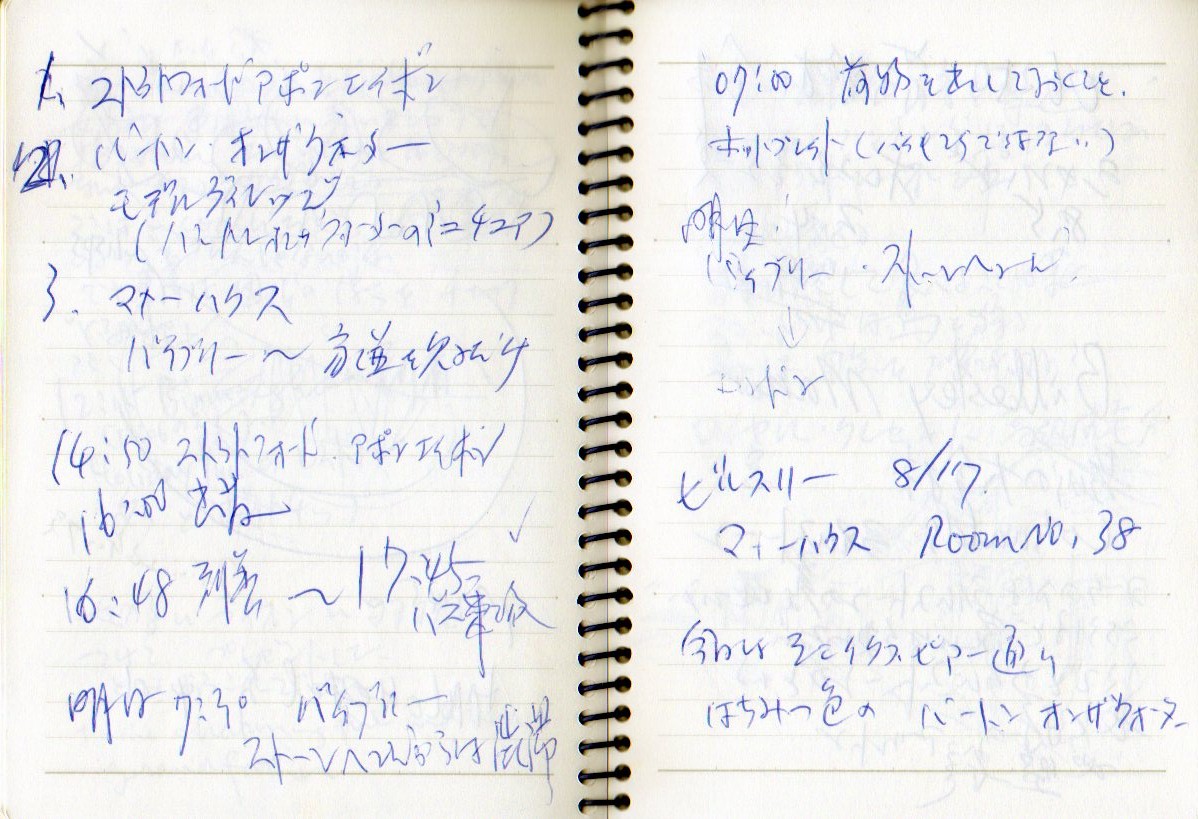 1. ストラトフォードアポンエイボン
2. バートン・オンザウォーター
モデルヴィレッジ
(バートンオンザウォーターのミニチュア)
3. マナーハウス
バイブリー〜
14:50 ストラトフォード アポンエイボン
16:00 出発
16:48 到着 〜 17:45
バス
明日 7:30 バイブリー
ストーンヘンジ 渋滞
07:00 荷物を出しておくこと.
ホットプレート
明日!
バイブリー・ストーンヘンジ
↓
ロンドン
ビルスリー 8/17.
マナーハウス Room No. 38
今日は シェイクスピアー通り
はちみつ色の バートン オンザウォーター